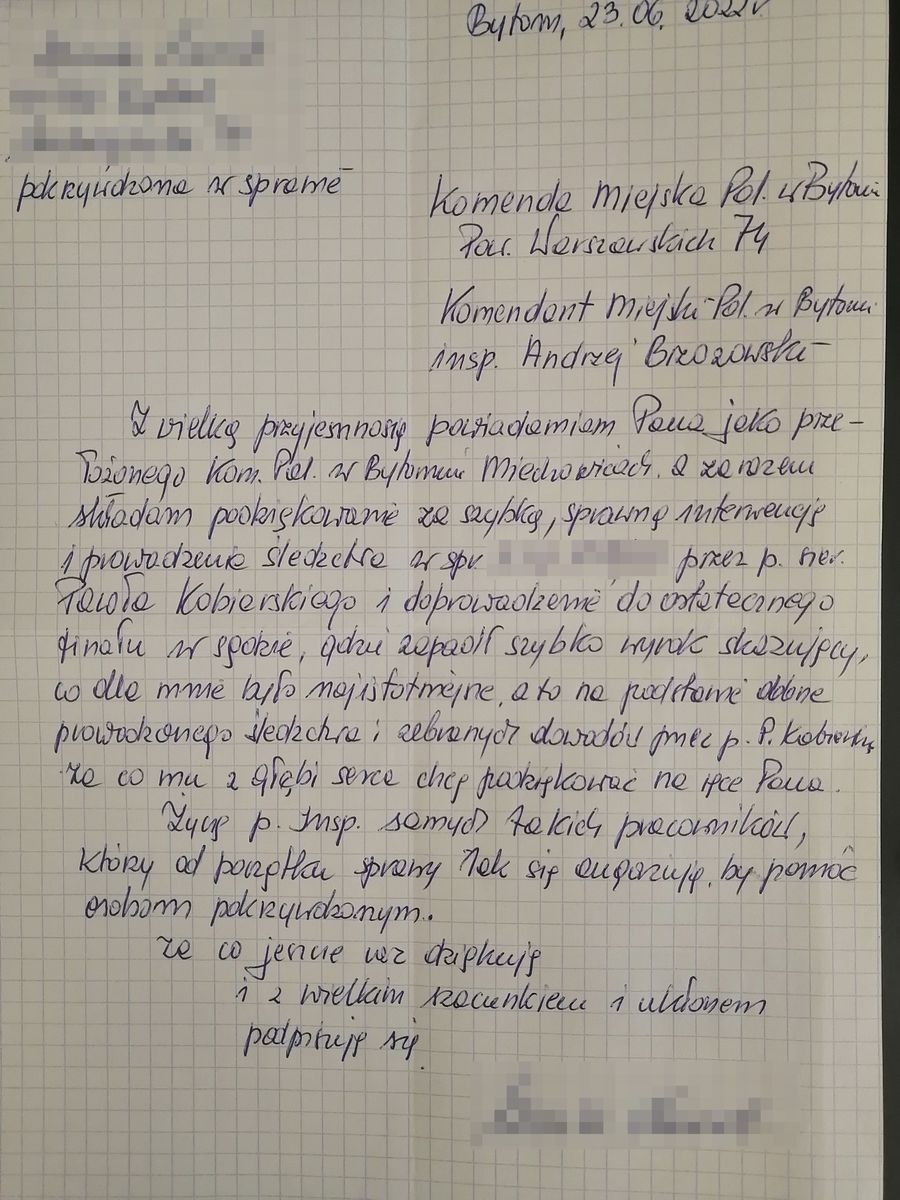 Bytom, 23.06. 2022r.
pokrzywdzona w sprawie
Komenda Miejska Pol. w Bytomiu
Pow. Warszawskich 74
Komendant Miejski Pol. w Bytomiu
insp. Andrzej Brzozowski
Z wielką przyjemnością powiadamiam Pana jako prze-
łożonego Kom. Pol. w Bytomiu Miechowicach, a zarazem
składam podziękowanie za szybką, sprawną interwencję
i prowadzenie śledztwa w spr. przez p. sier.
Pawła Kobierskiego i doprowadzenie do ostatecznego
finału w sądzie, gdzie zapadł szybko wyrok skazujący,
co dla mnie było najistotniejsze, a to na podstawie dobrze
prowadzonego śledztwa i zebranych dowodów przez p. P. Kobierskiego
za co mu z głębi serca chcę podziękować na ręce Pana.
Życzę p. Insp. samych takich pracowników,
który od początku sprawy tak się angażują, by pomóc
osobom pokrzywdzonym.
za co jeszcze raz dziękuję
i z wielkim szacunkiem i ukłonem
podpisuję się